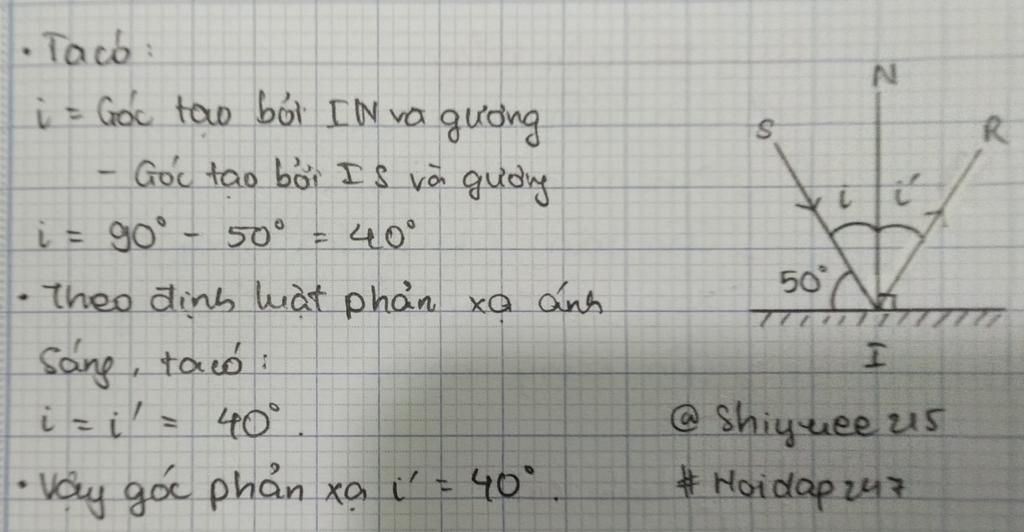 • Ta có:
i = Góc tạo bởi IN và gương
- Góc tạo bởi IS và gương
i = 90° - 50° = 40°
• Theo định luật phản xạ ánh
sáng, ta có:
i = i' = 40°.
• Vậy góc phản xạ i' = 40°.
N
S
R
i
i'
50°
I
@ Shiyuee 215
# Hoidap247